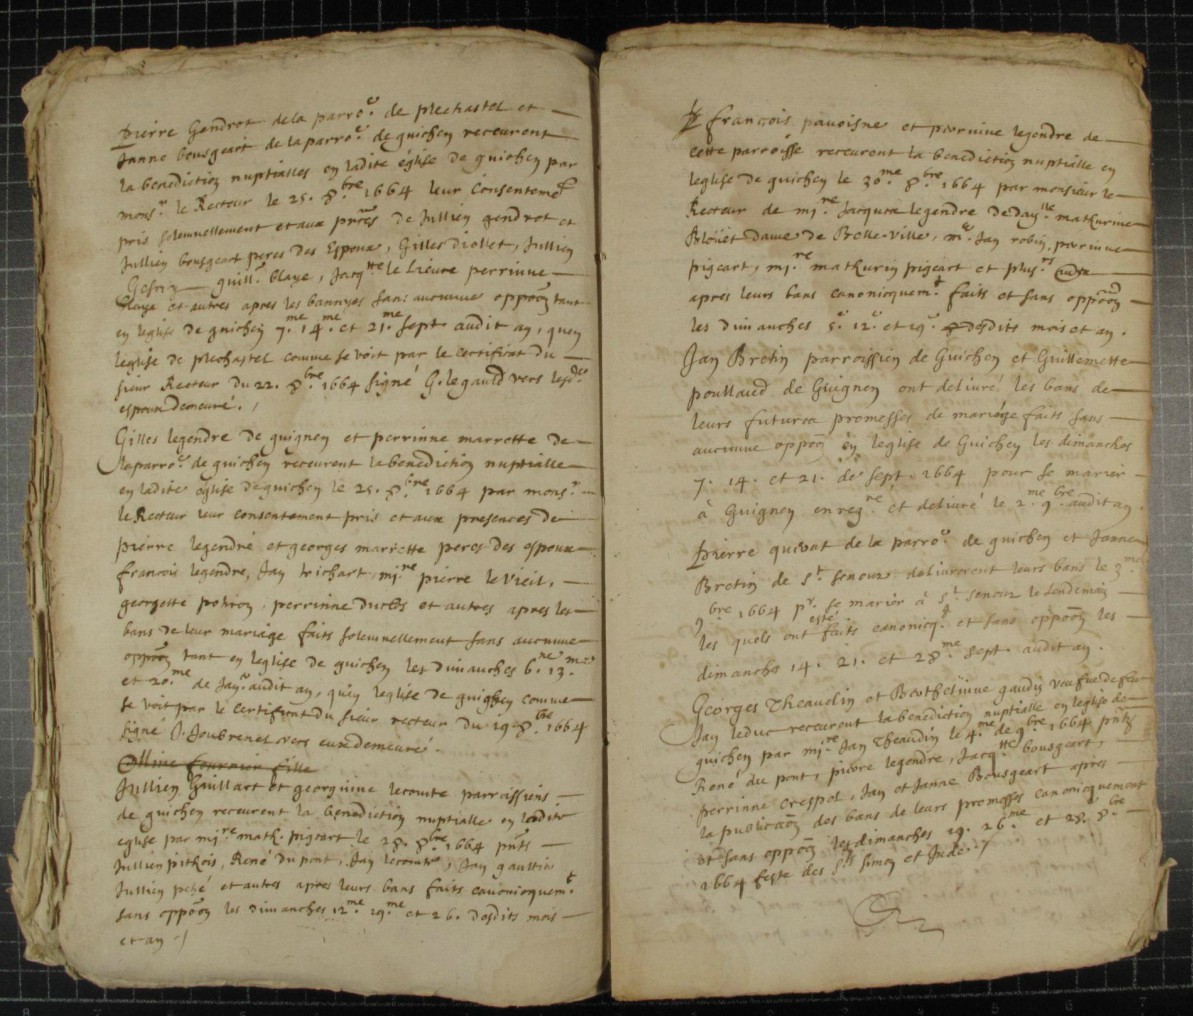 Pierre Gendrot de la parro.e de plechastel et
Janne bousgeart de la parro.e de guichen receurent
la benediction nuptialles en ladite église de guichen par
mons.r le Recteur le 25. 8.bre 1664 leur Consenteme.t
pris solemnellement et aux pnces de Jullien gendrot et
Jullien bousgeart peres des Espoux, Gilles Diollet, Jullien
guill. blaye, Jacq.tte le Lieure perrinne
blaye et autres apres les bannyes sans aucune oppoon tant
en leglise de guichen 7.me 14.me et 21.me sept. audit an, quen
leglise de plechastel comme se voit par le Certificat du
sieur Recteur du 22. 8.bre 1664 signé G. legauld vers lesd.
espoux demeuré.
Gilles legendre de guignen et perrinne marrette de
la parro.e de guichen receurent la benediction nuptialle
en ladite eglise de guichen le 25. 8.bre 1664 par mons.r
le Recteur leur consentement pris et aux presences de
pierre legendre et georges marrette peres des espoux
francois legendre, Jan trichart, mi.re pierre le Vieil,
georgette poirion, perrinne et autres apres les
bans de leur mariage faits solemnellement sans aucune
oppoon tant en leglise de guichen les dimanches 6.me 13.me
et 20.me de Jan.r audit an, qu'en leglise de guighen comme
se voit par le Certificat du sieur recteur du 19. 8.bre 1664
signé J. Joubrenel vers eux demeuré.
Ollive fournier fille
Jullien Guillart et georginne lecomte parroissiens
de guichen receurent la benediction nuptialle en ladite
eglise par mi.re math. pigeart le 28. 8.bre 1664 pnts
Jullien pitkois, René du pont, Jan lecomte, Jan gaultier
Jullien peché et autres apres leurs bans faits canonicquem.t
sans oppoon les dimanches 12.me 19.me et 26. desdits mois
et an
francois pauoisne et perrinne legendre de
cette parroisse receurent la benediction nuptialle en
leglise de guichen le 30.me 8.bre 1664 par monsieur le
Recteur de mi.re Jacques legendre de Day.lle mathurine
Bloüet dame de Belle-ville, m.e Jan robin, perrinne
pigeart, mi.re mathurin pigeart et plus.rs
apres leurs bans canonicquem.t faits et sans oppoon
les dimanches 5.e 12.e et 19.e desdits mois et an.
Jan Bretin parroissien de Guichen et Guillemette
poullaud de Guignen ont deliuré les bans de
leurs futures promesses de mariage faits sans
aucune oppoon en leglise de Guichen les dimanches
7. 14. et 21. de sept. 1664 pour se marier
à Guignen en reg.re et deliuré le 2.me 9.bre audit an.
Pierre quevat de la parro.e de guichen et Janne
Bretin de S.t Senoux deliurerent leurs bans le 3.me
9.bre 1664 p.r se marier à S.t Senoux le lendemain
les quels ont esté faits canonicq.t et sans oppoon les
dimanches 14. 21. et 28.me sept. audit an.
Georges Theaudin et Berthelinne gaudu veufue de feu
Jan leduc receurent la benediction nuptialle en leglise de
guichen par mi.re Jan Theaudin le 4.me de 9.bre 1664 pnts
René du pont, pierre legendre, Jacq.tte bousgeart,
perrinne Crespel, Jan et Janne Bousgeart apres
la publicaon des bans de leurs promesses canonicquement
et sans oppoon les dimanches 19. 26.me et 28. 8.bre
1664 feste des S.ts Simon et Jude.